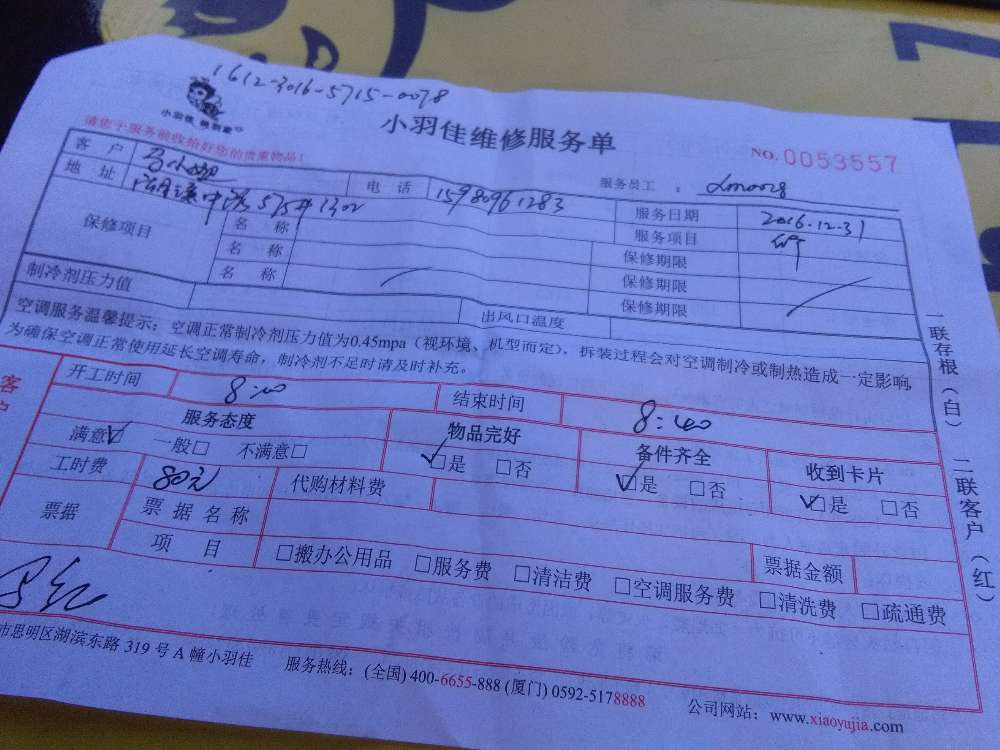 1612-3016-5715-0078
小羽佳
小羽佳维修服务单
NO.0053557
请您于服务前收拾好您的贵重物品！
客户
电话 15980961283
服务员工：
地址
服务日期 2016.12.31
保修项目
名称
服务项目
名称
保修期限
名称
保修期限
保修期限
制冷剂压力值
出风口温度
空调服务温馨提示：空调正常制冷剂压力值为0.45mpa（视环境、机型而定），拆装过程会对空调制冷或制热造成一定影响，
为确保空调正常使用延长空调寿命，制冷剂不足时请及时补充。
一联存根（白）二联客户（红）
客户
开工时间 8:00
结束时间 8:40
服务态度
物品完好
备件齐全
收到卡片
满意☑ 一般□ 不满意□
☑是 □否
☑是 □否
☑是 □否
工时费 80元
代购材料费
票据
票据名称
票据金额
项目
□搬办公用品 □服务费 □清洁费 □空调服务费 □清洗费 □疏通费
市思明区湖滨东路 319 号 A 幢小羽佳 服务热线：(全国) 400-6655-888 (厦门) 0592-5178888
公司网站：www.xiaoyujia.com